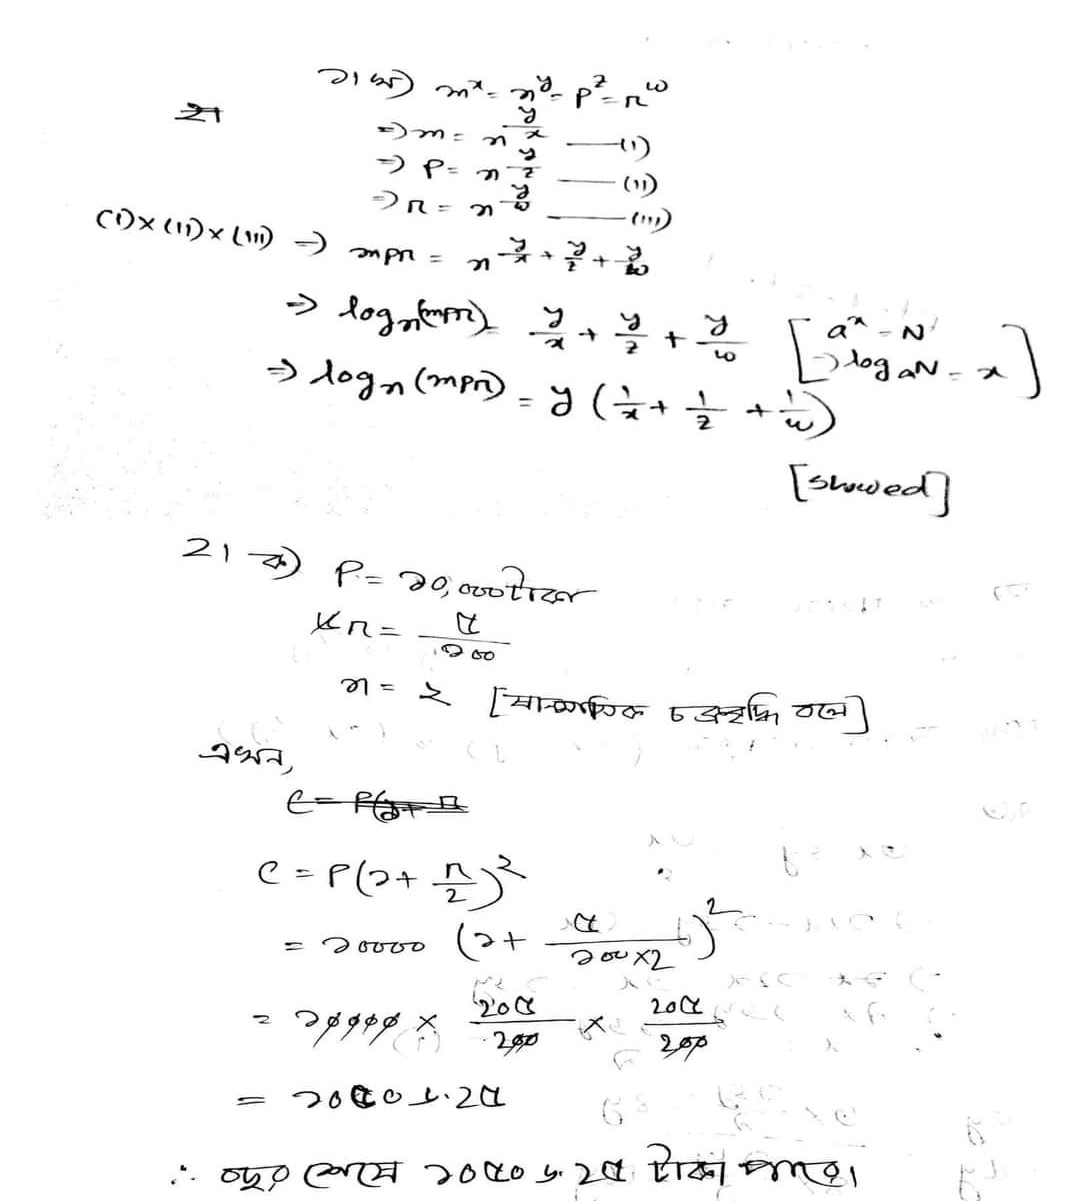 ১। খ) m^x = n^y = p^z = r^w
⇒ m = n^(y/x) —— (i)
⇒ p = n^(y/z) —— (ii)
⇒ r = n^(y/w) —— (iii)
(i)×(ii)×(iii) ⇒ mpr = n^(y/x + y/z + y/w)
⇒ log_n(mpr) = y/x + y/z + y/w [a^x = N ⇒ log_a N = x]
⇒ log_n(mpr) = y(1/x + 1/z + 1/w)
[showed]
২। ক) P = ১০,০০০ টাকা
r = ৫/১০০
n = ২ [ষান্মাসিক চক্রবৃদ্ধি বলে]
এখন,
C = P(১ + r/২)^২
= ১০০০০ (১ + ৫/(১০০×২))^২
= ১০০০০ × ২০৫/২০০ × ২০৫/২০০
= ১০৫০৬.২৫
∴ বছর শেষে ১০৫০৬.২৫ টাকা পাবে।